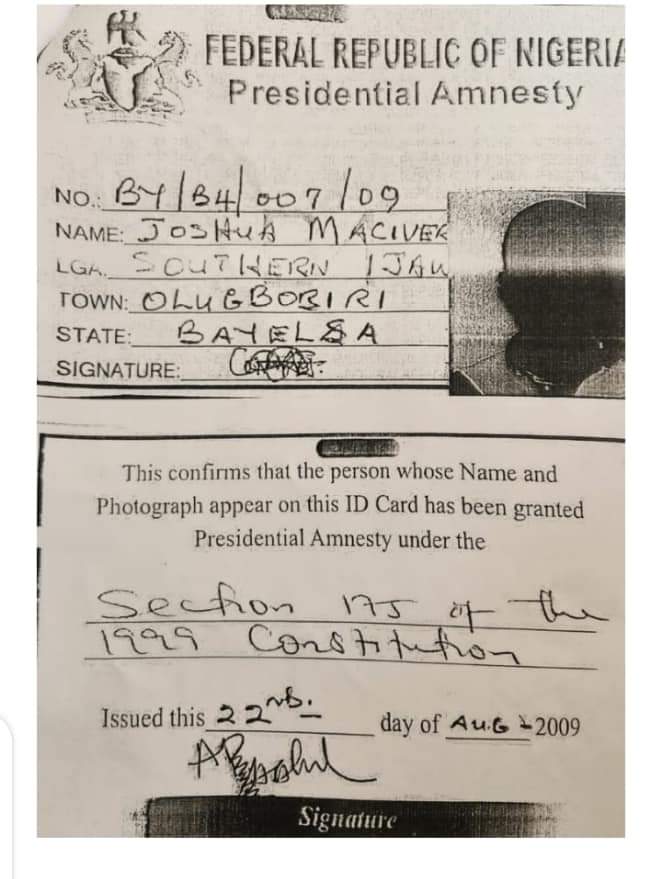 FEDERAL REPUBLIC OF NIGERIA
Presidential Amnesty
NO.: BY/B4/007/09
NAME: JOSHUA MACIVER
LGA. SOUTHERN IJAW
TOWN: OLUGBOBIRI
STATE: BAYELSA
SIGNATURE:
This confirms that the person whose Name and
Photograph appear on this ID Card has been granted
Presidential Amnesty under the
Section 175 of the
1999 Constitution
Issued this 22nd. day of AUG 2009
Signature